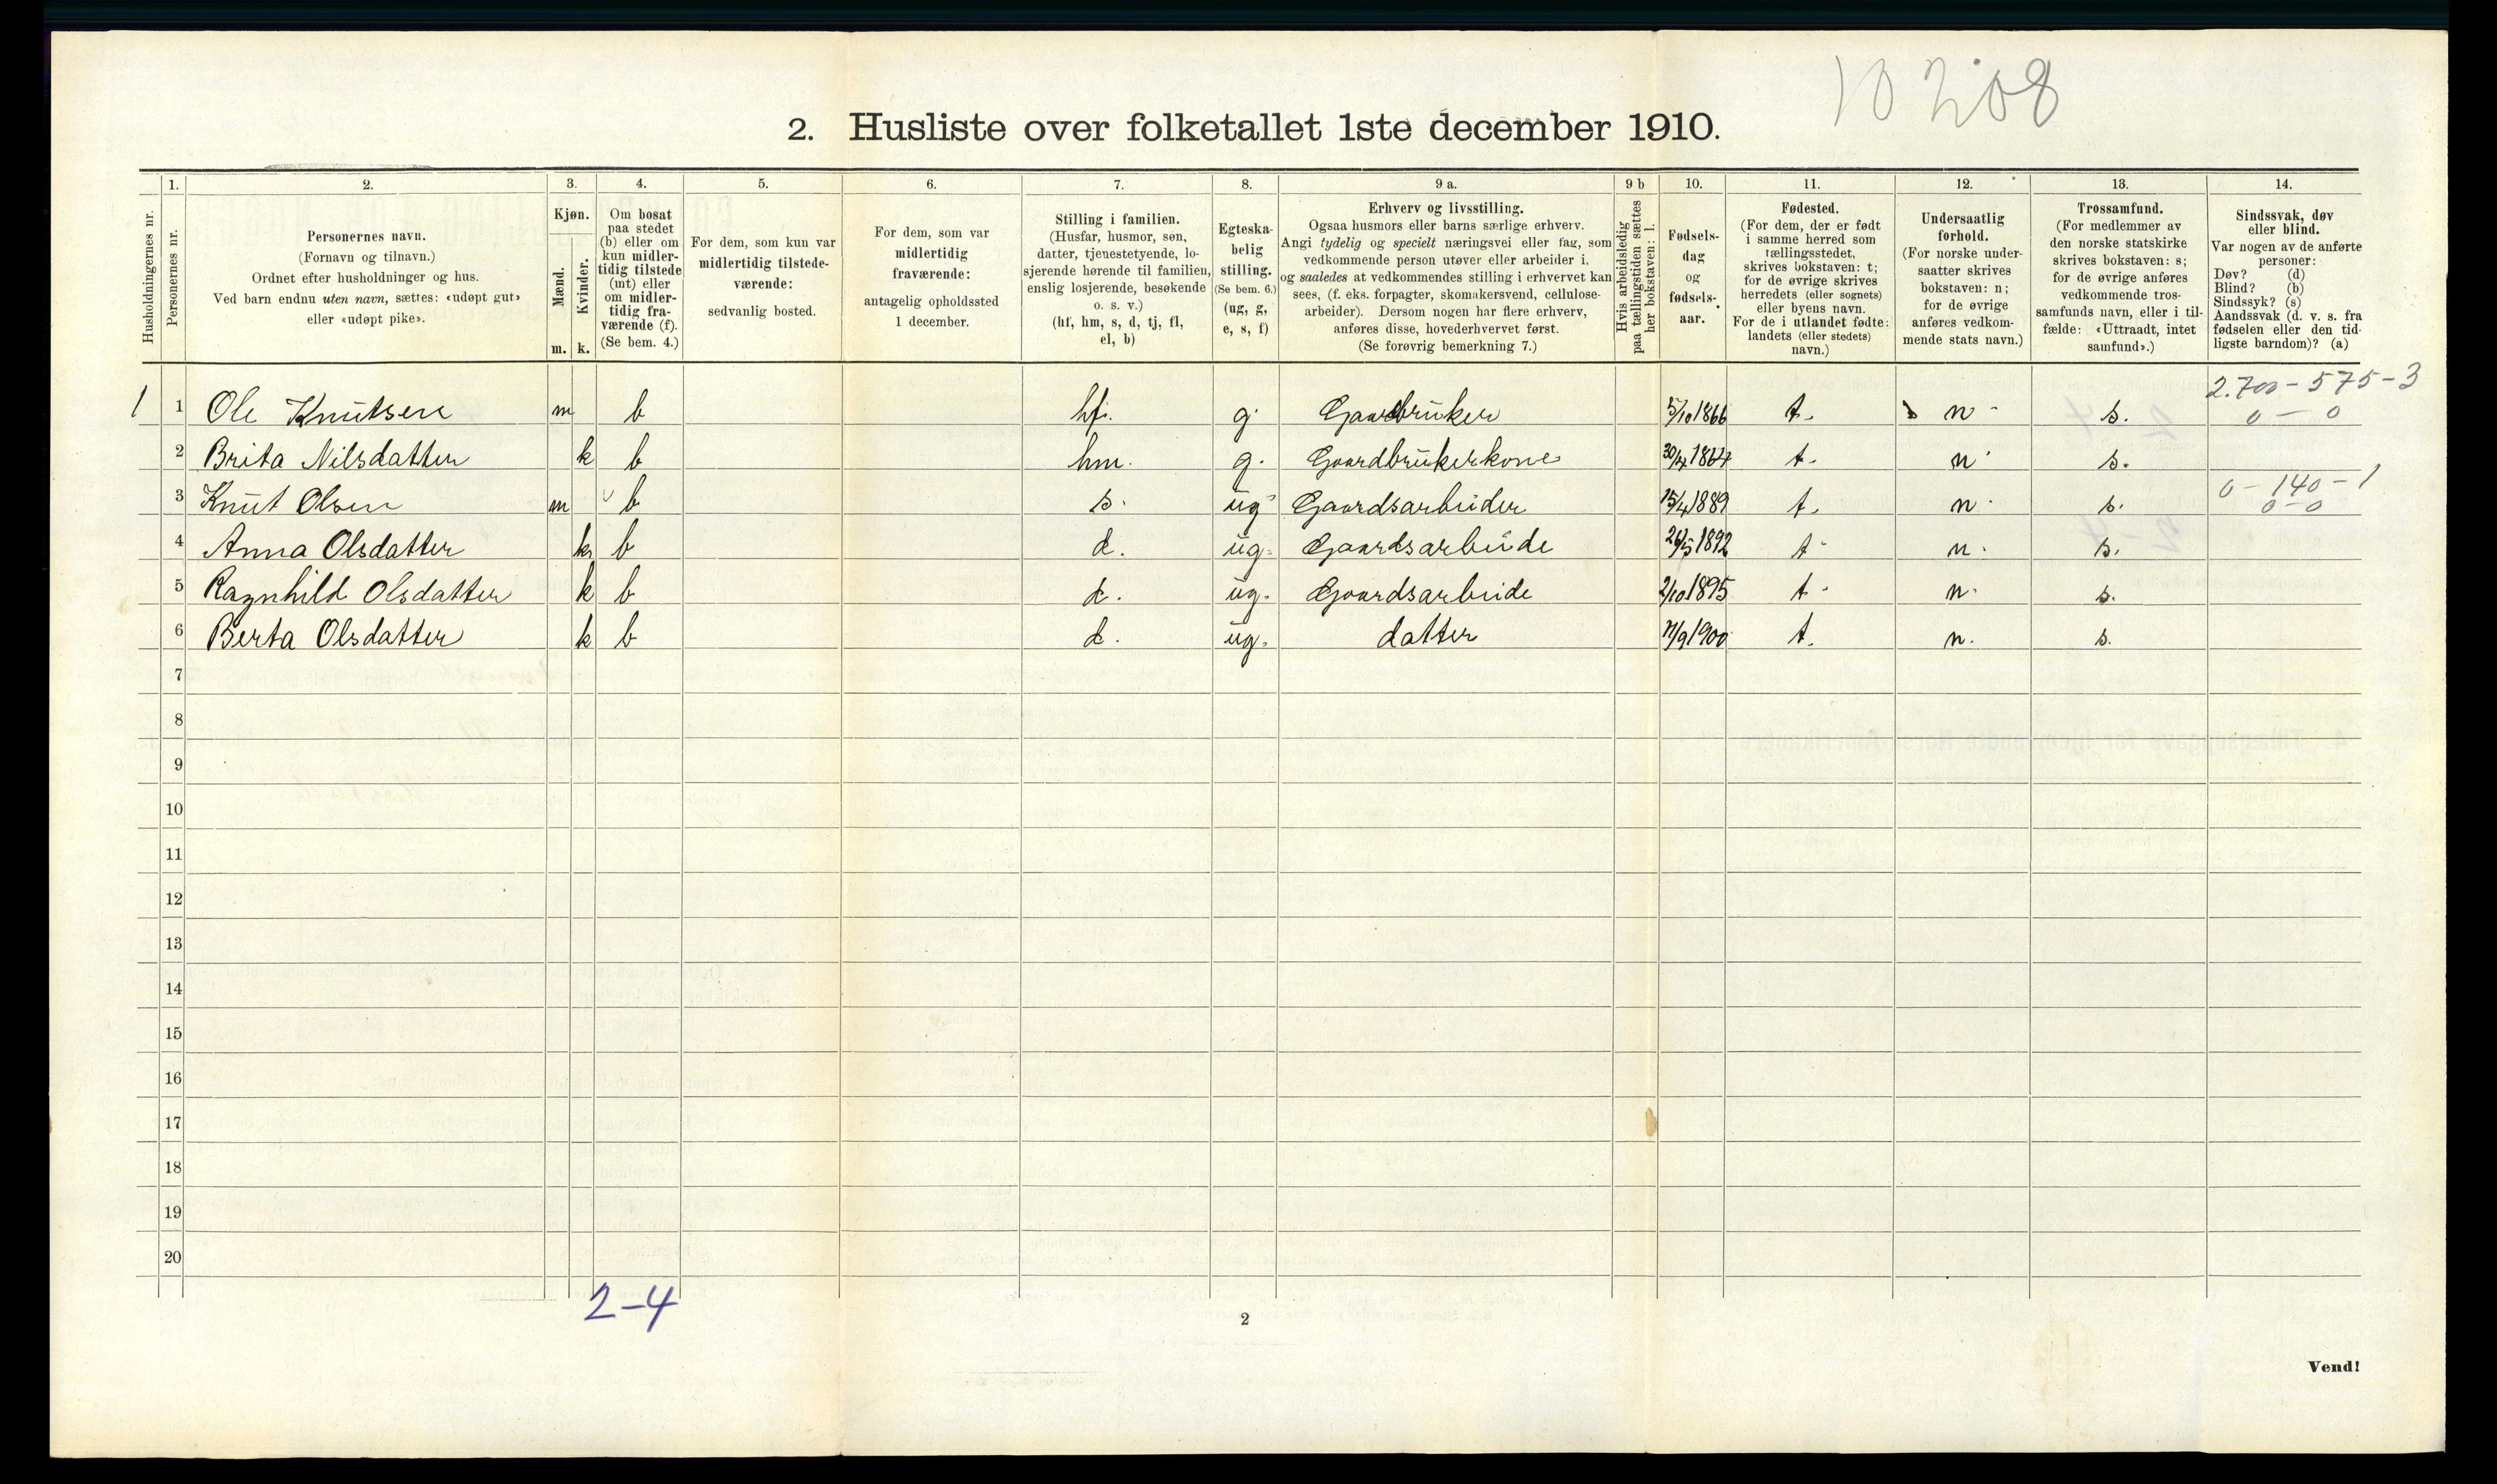 10208
2. Husliste over folketallet 1ste december 1910.
Husholdningernes nr.
1.
Personernes nr.
2.
Personernes navn.
(Fornavn og tilnavn.)
Ordnet efter husholdninger og hus.
Ved barn endnu uten navn, sættes: «udøpt gut»
eller «udøpt pike».
3.
Kjøn.
Mænd.
Kvinder.
m. k.
4.
Om bosat
paa stedet
(b) eller om
kun midler-
tidig tilstede
(mt) eller
om midler-
tidig fra-
værende (f).
(Se bem. 4.)
5.
For dem, som kun var
midlertidig tilstede-
værende:
sedvanlig bosted.
6.
For dem, som var
midlertidig
fraværende:
antagelig opholdssted
1 december.
7.
Stilling i familien.
(Husfar, husmor, søn,
datter, tjenestetyende, lo-
sjerende hørende til familien,
enslig losjerende, besøkende
o. s. v.)
(hf, hm, s, d, tj, fl,
el, b)
8.
Egteska-
belig
stilling.
(Se bem. 6.)
(ug, g,
e, s, f)
9 a.
Erhverv og livsstilling.
Ogsaa husmors eller barns særlige erhverv.
Angi tydelig og specielt næringsvei eller fag, som
vedkommende person utøver eller arbeider i,
og saaledes at vedkommendes stilling i erhvervet kan
sees, (f. eks. forpagter, skomakersvend, cellulose-
arbeider). Dersom nogen har flere erhverv,
anføres disse, hovederhvervet først.
(Se forøvrig bemerkning 7.)
9 b
Hvis arbeidsledig
paa tællingstiden sættes
her bokstaven: l.
10.
Fødsels-
dag
og
fødsels-
aar.
11.
Fødested.
(For dem, der er født
i samme herred som
tællingsstedet,
skrives bokstaven: t;
for de øvrige skrives
herredets (eller sognets)
eller byens navn.
For de i utlandet fødte:
landets (eller stedets)
navn.)
12.
Undersaatlig
forhold.
(For norske under-
saatter skrives
bokstaven: n;
for de øvrige
anføres vedkom-
mende stats navn.)
13.
Trossamfund.
(For medlemmer av
den norske statskirke
skrives bokstaven: s;
for de øvrige anføres
vedkommende tros-
samfunds navn, eller i til-
fælde: «Uttraadt, intet
samfund».)
14.
Sindssvak, døv
eller blind.
Var nogen av de anførte
personer:
Døv? (d)
Blind? (b)
Sindssyk? (s)
Aandssvak (d. v. s. fra
fødselen eller den tid-
ligste barndom)? (a)
2.700 - 575 - 3
1 1 Ole Knutsen m b hf. g. Gaardbruker 5/10 1866 t. n s. 0 - 0
2 Brita Nilsdatter k b hm. g. Gaardbrukerkone t. n s.
0 - 140 - 1
3 Knut Olsen m b s. ug Gaardsarbeider 15/4 1889 t. n s. 0 - 0
4 Anna Olsdatter k b d. ug. Gaardsarbeide 26/5 1892 t n. s.
5 Ragnhild Olsdatter k b d. ug. Gaardsarbeide 2/10 1895 t n. s.
6 Berta Olsdatter k b d. ug. datter t. n. s.
7
8
9
10
11
12
13
14
15
16
17
18
19
20
2-4
2
Vend!